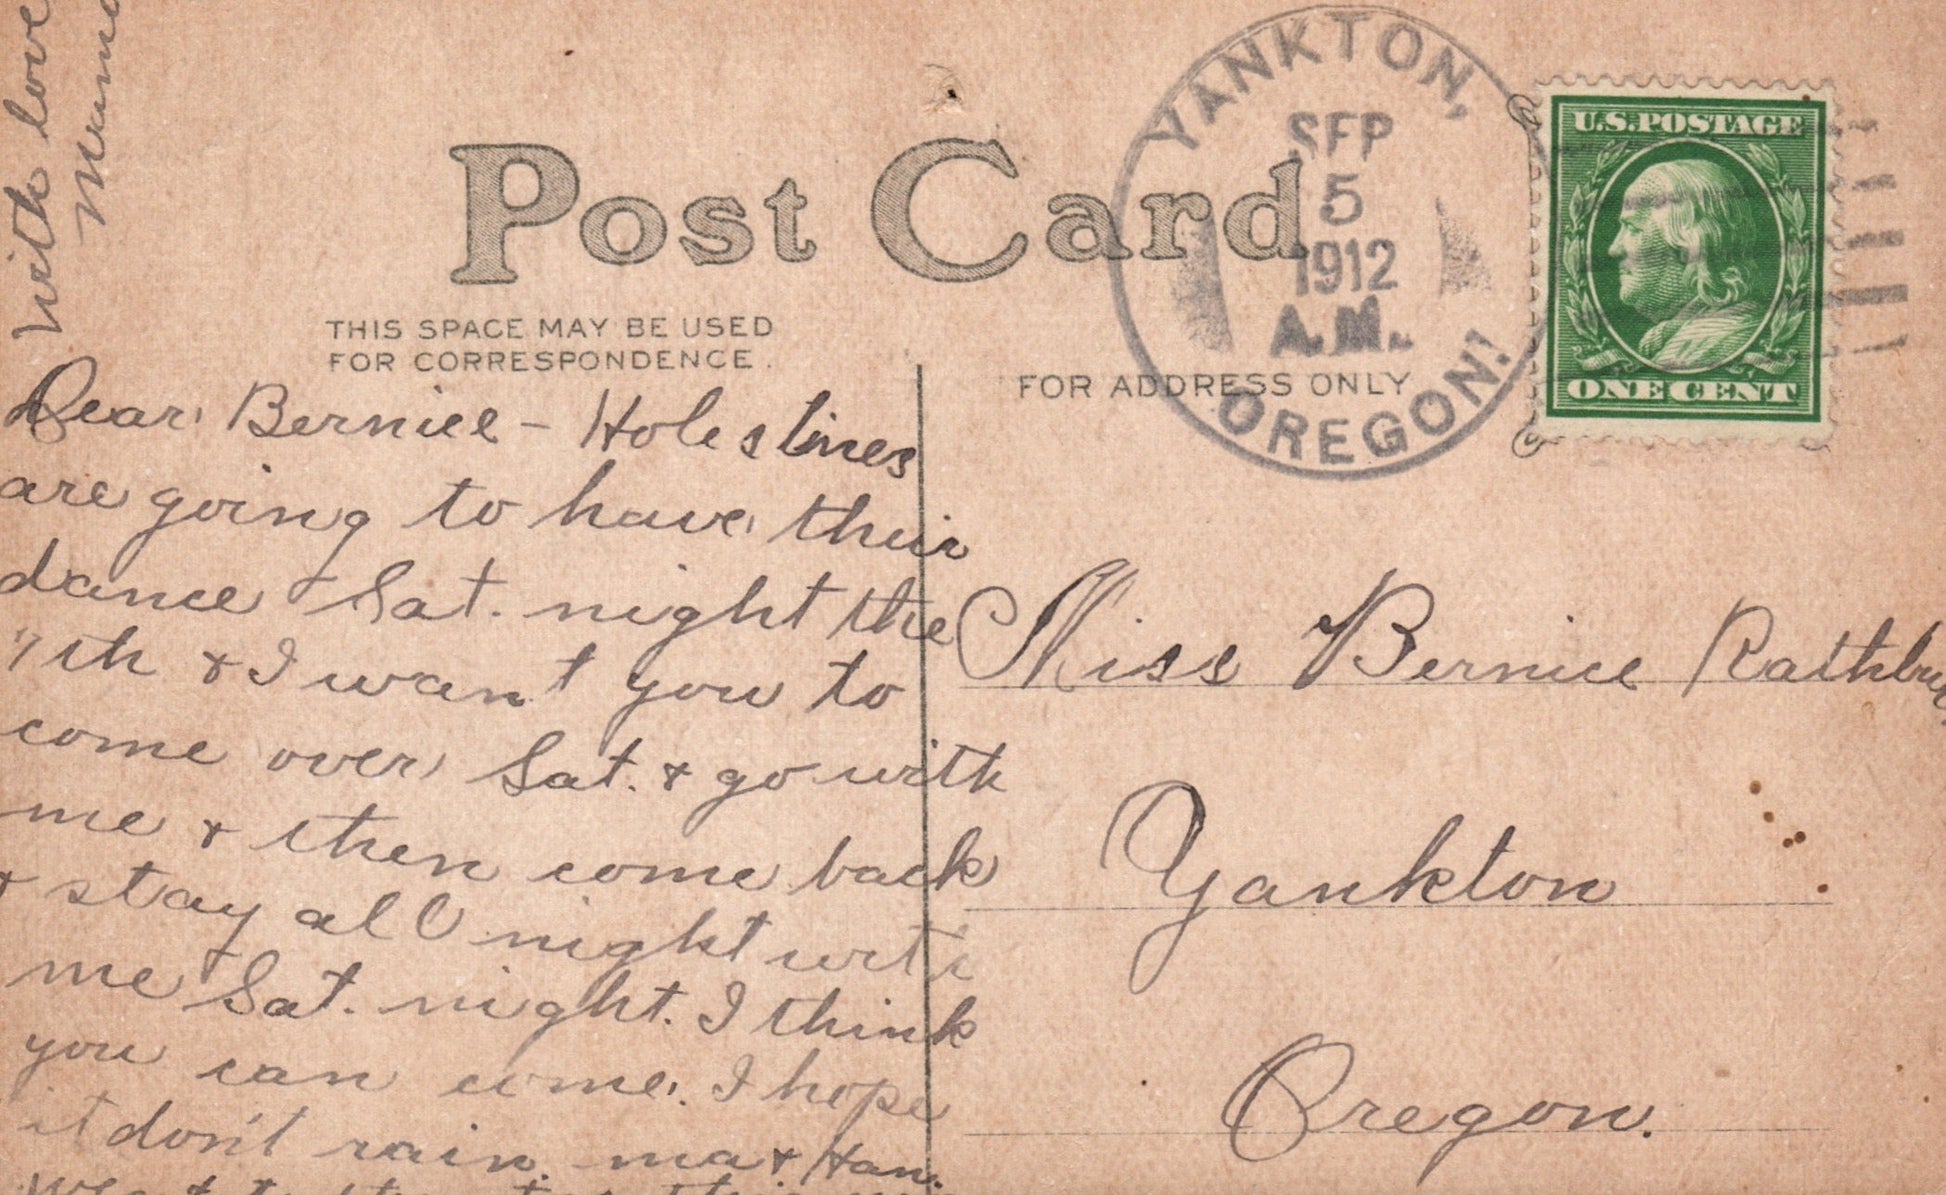 With love
Post Card
THIS SPACE MAY BE USED
FOR CORRESPONDENCE.
FOR ADDRESS ONLY
YANKTON,
SEP
5
1912
A.M.
OREGON.
U.S. POSTAGE
ONE CENT
Dear Bernice - Holstines
are going to have their
dance Sat. night the
7th & I want you to
come over Sat. & go with
me & then come back
& stay all night with
me Sat. night. I think
you can come. I hope
it don't rain. ma & Han.
Miss Bernice
Yankton
Oregon.